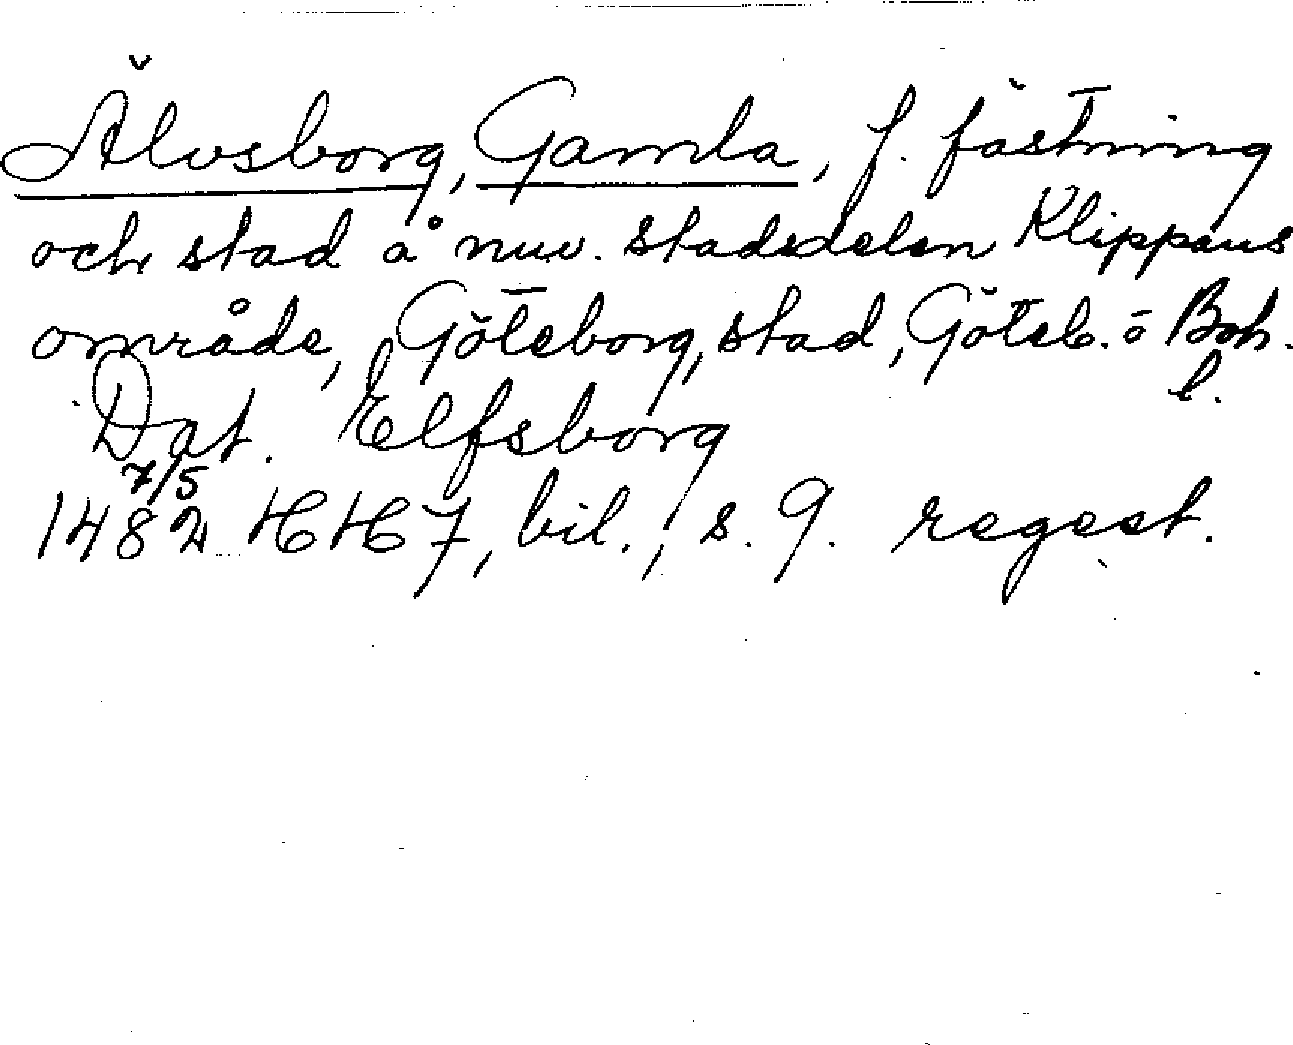 Älvsborg, Gamla, f. fästning
och stad å nuv. stadsdelen Klippans
område, Göteborg, stad, Göteb. o Boh.
l.
Dat. Elfsborg
7/5
1482 HH 7, bil., s. 9. regest.